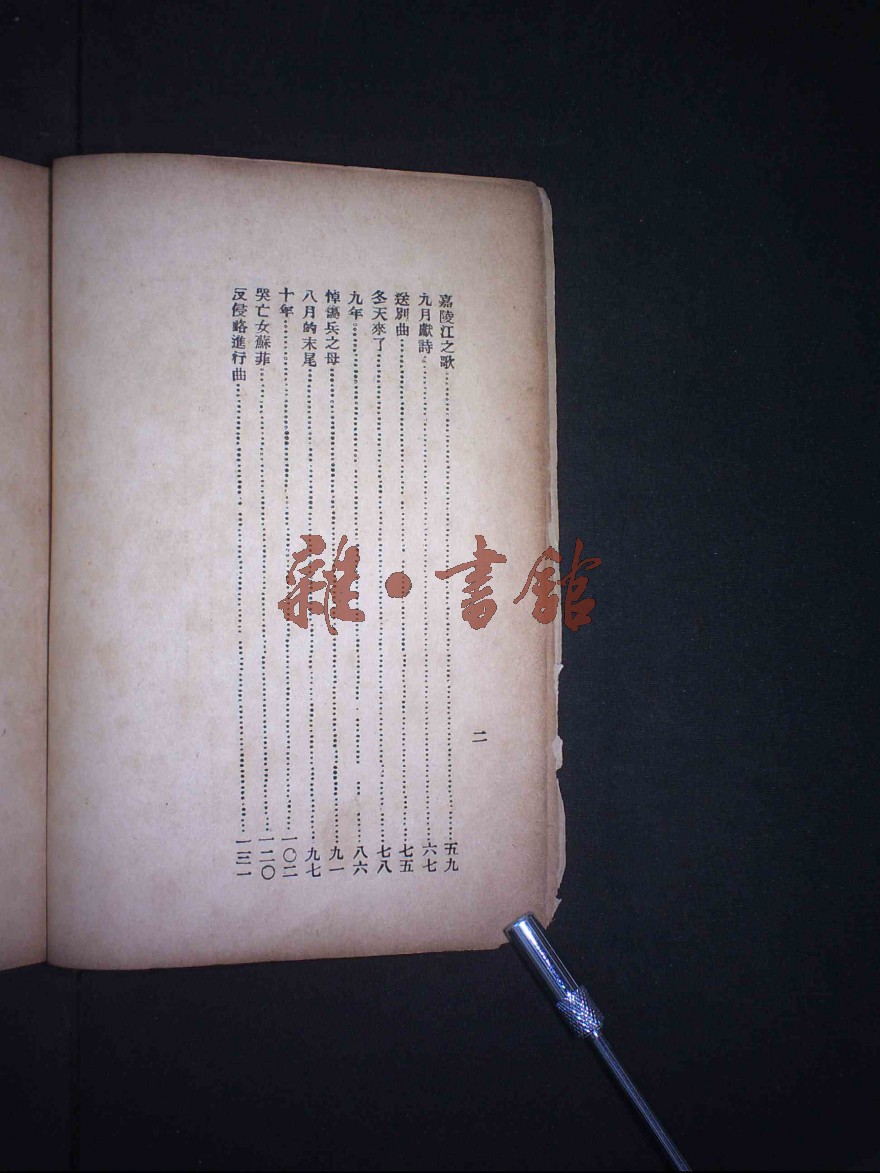 嘉陵江之歌……五九
九月獻詩……六七
送別曲……七五
冬天來了……七八
九年……八六
悼鴿兵之母……九一
八月的末尾……九七
十年……一〇二
哭亡女蘇菲……一二〇
反侵略進行曲……一三一
二
雜·書館